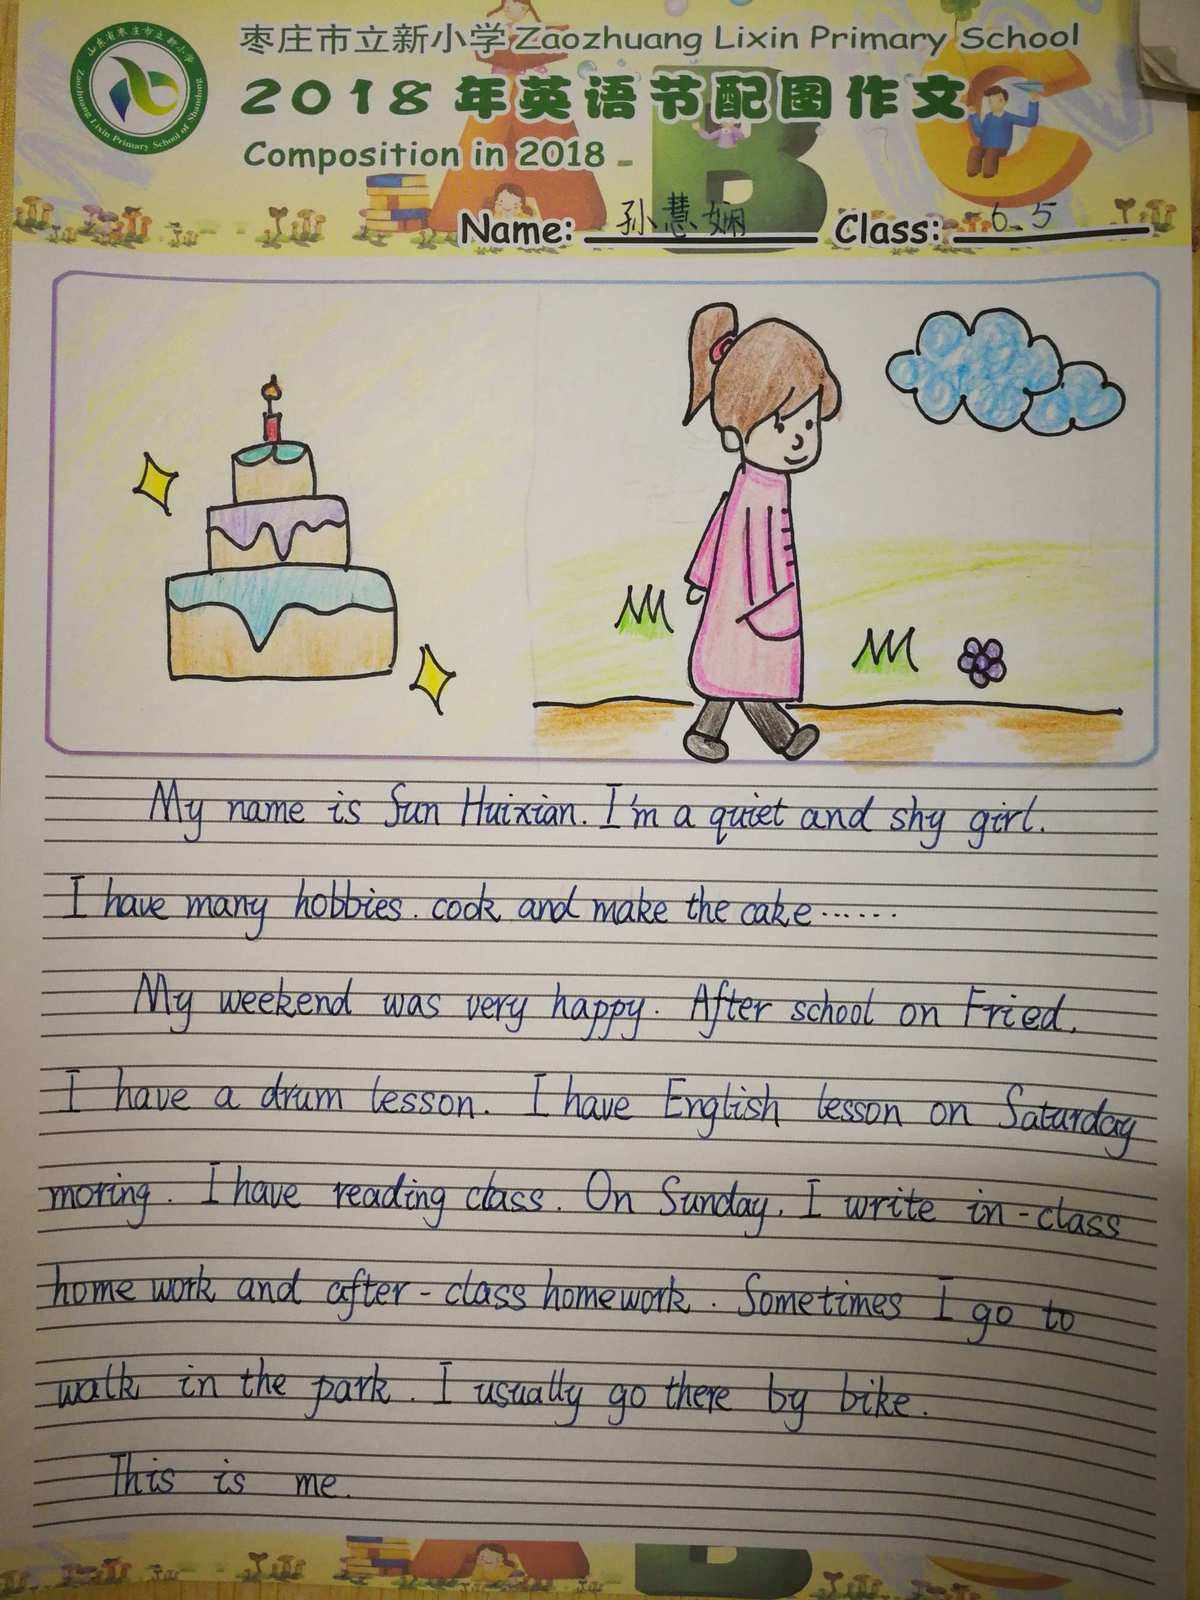 山东省枣庄市立新小学
Zaozhuang Lixin Primary School of Shandong
枣庄市立新小学 Zaozhuang Lixin Primary School
2018年英语节配图作文
Composition in 2018
Name: 孙慧娴 Class: 6.5
My name is Sun Huixian. I'm a quiet and shy girl.
I have many hobbies. cook and make the cake……
My weekend was very happy. After school on Fried.
I have a drum lesson. I have English lesson on Saturday
moring. I have reading class. On Sunday. I write in-class
home work and after-class homework. Sometimes I go to
walk in the park. I usually go there by bike.
This is me.